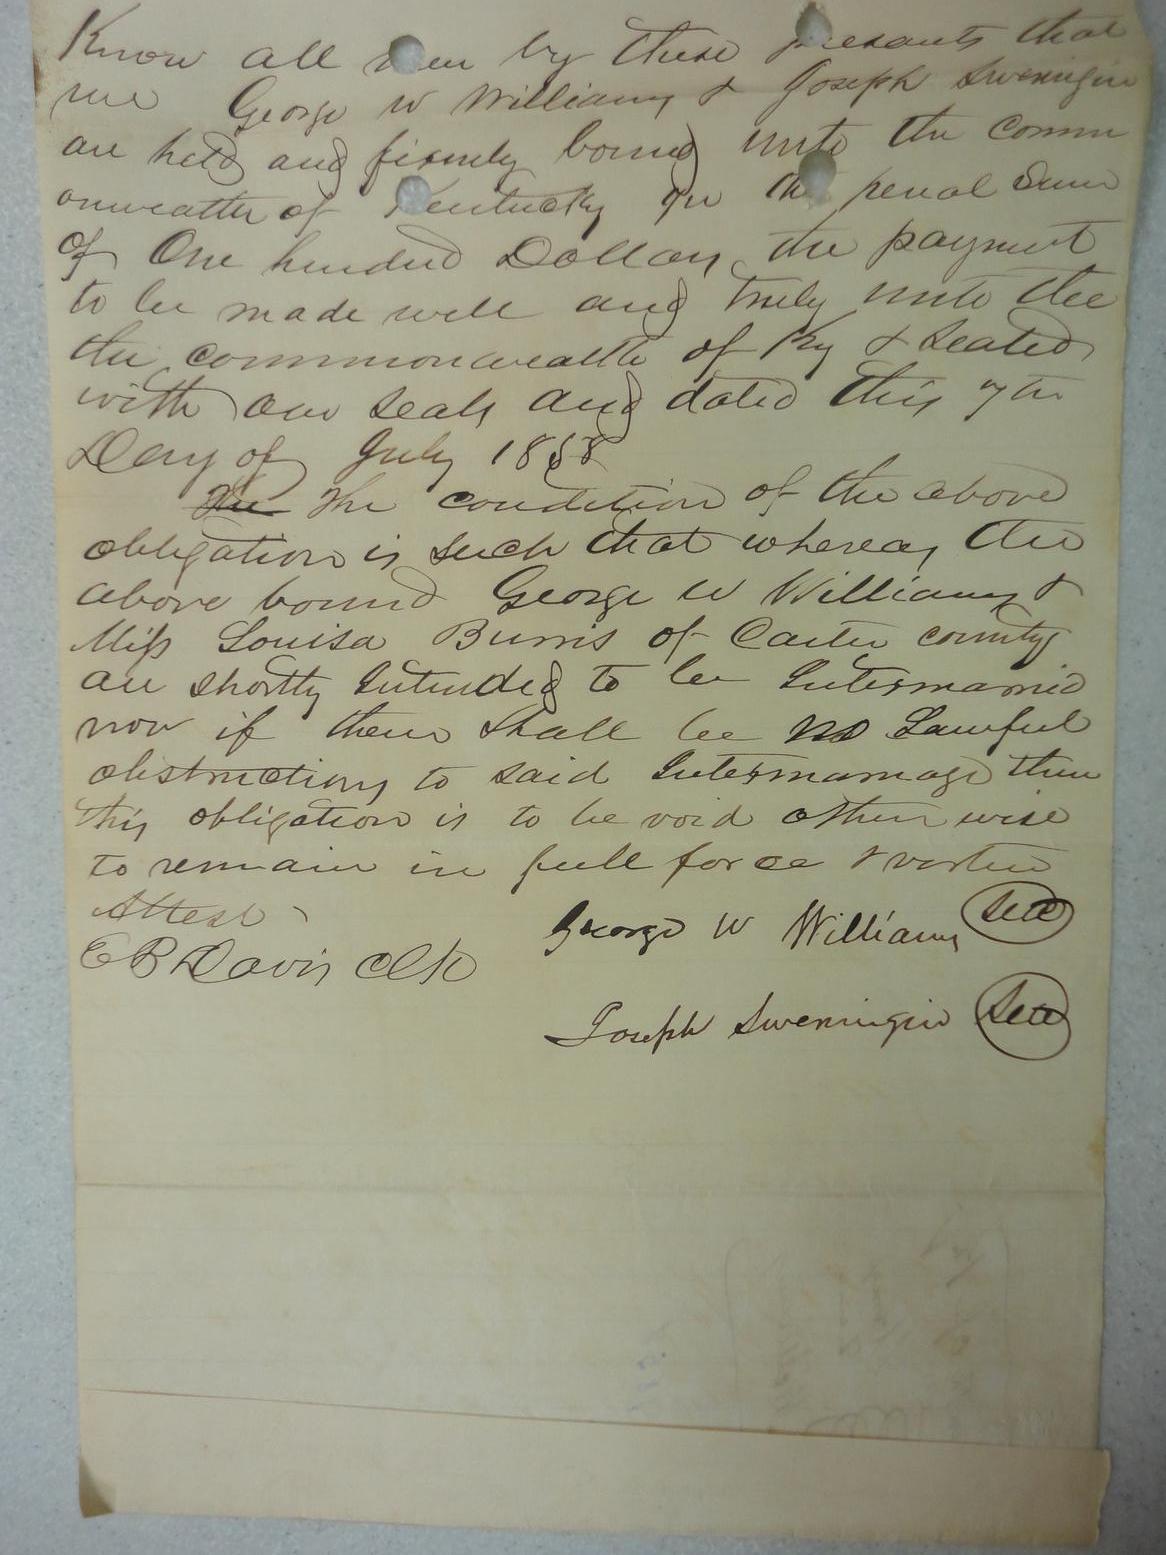 Know all men by these presants that
we George W Williams & Joseph Sweningin
are held and firmly bound unto the comm
onwealth of Kentucky in the penal Sum
of One hundred Dollars the payment
to be made well and truly unto the
the commonwealth of Ky & Sealed
with our seals and dated this 7th
Day of July 1858
The The condition of the above
obligation is such that whereas the
above bound George W Williams &
Miss Louisa Burris of Carter county
are shortly Intended to be Intermarried
now if there shall be no Lawful
obstructions to said Intermarriage then
this obligation is to be void other wise
to remain in full force & virtue
Attest
George W Williams Seal
E B Davis Clk
Joseph Sweningin Seal